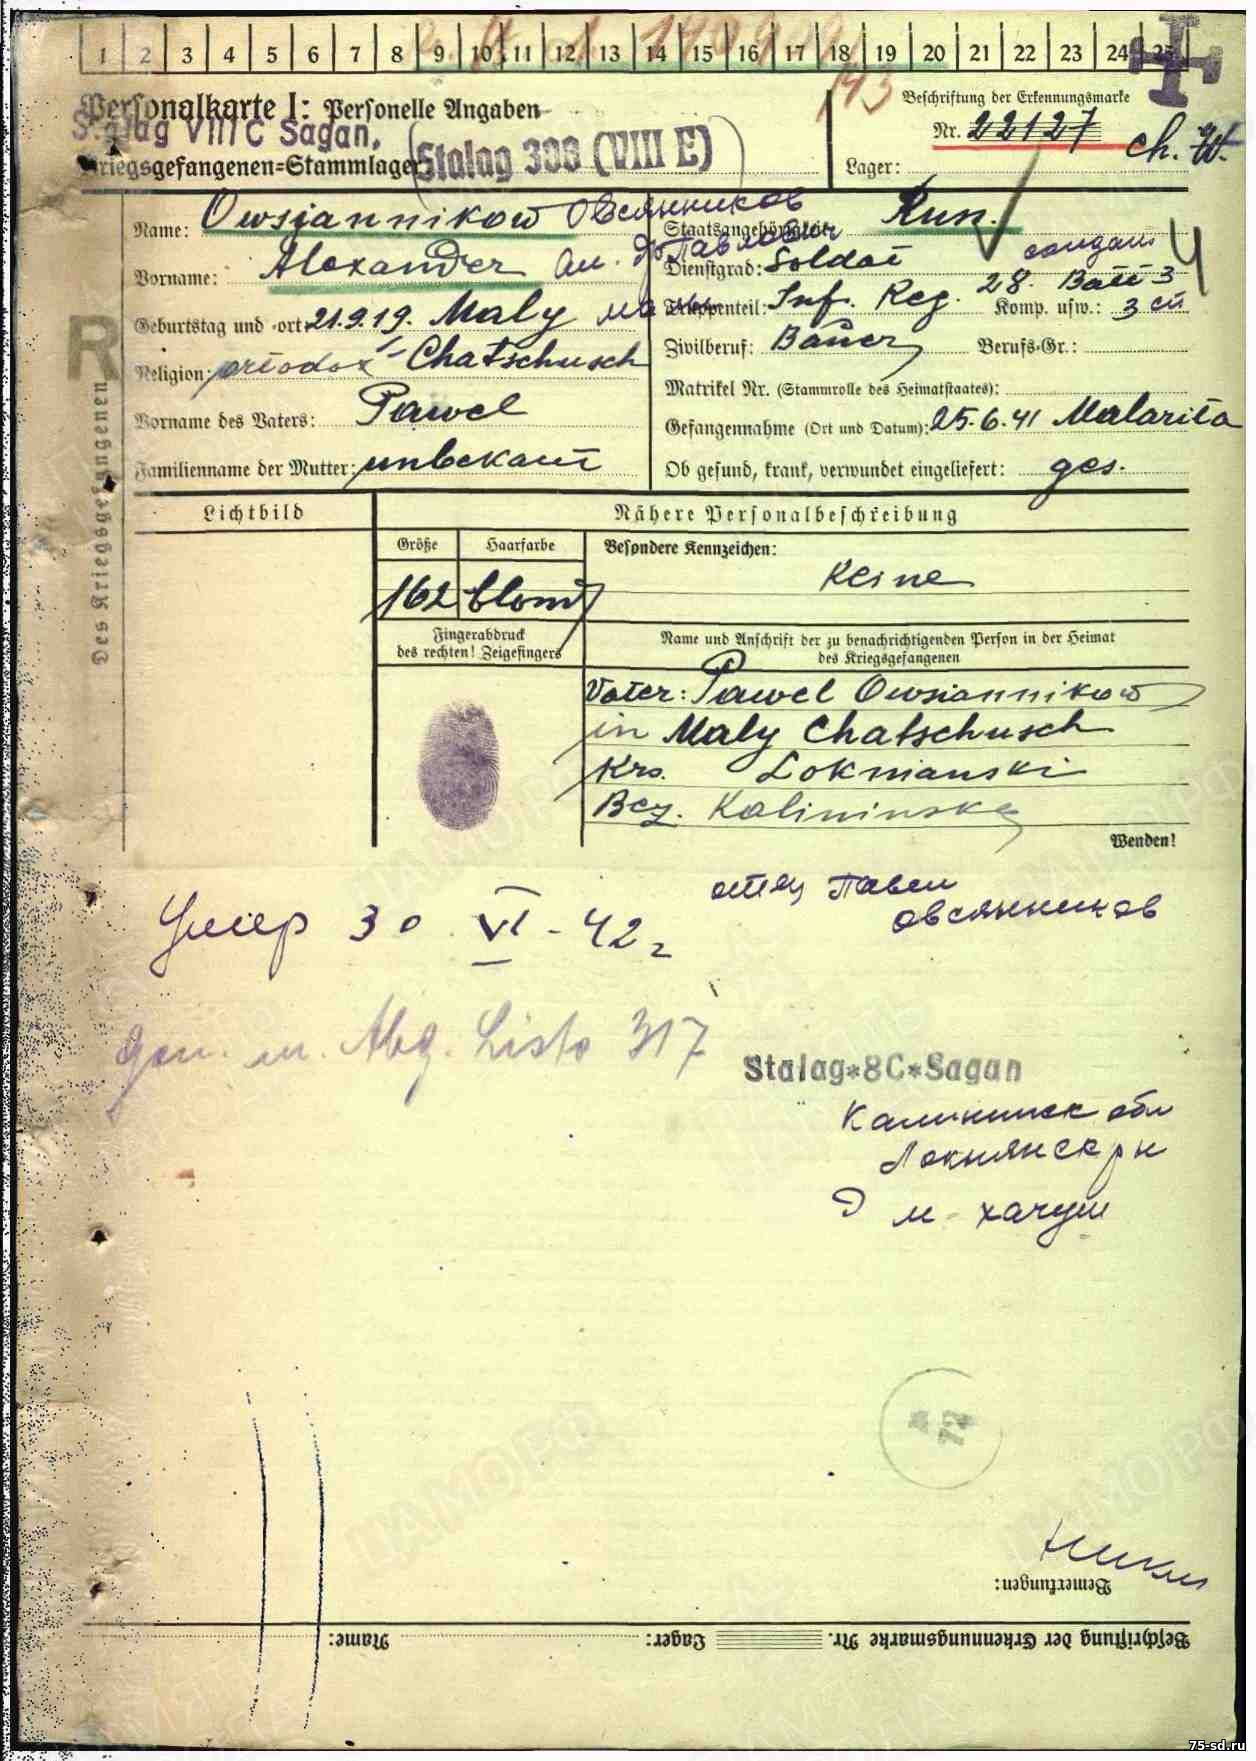 1 2 3 4 5 6 7 8 9 10 11 12 13 14 15 16 17 18 19 20 21 22 23 24 25
143
Personalkarte I: Personelle Angaben
Beschriftung der Erkennungsmarke
Stalag VIII C Sagan,
Nr. 22127
Kriegsgefangenen=Stammlager
Stalag 308 (VIII E)
Lager:
Des Kriegsgefangenen
R
Name: Owsjannikow Овсянников
Staatsangehörigkeit: Rus.
Vorname: Alexander Ал. Павлович
Dienstgrad: Soldat солдат
Geburtstag und -ort: 21.9.19. Maly
Truppenteil: Inf. Reg. 28. Batt 3 Komp. usw.:
Religion: ortodox Chatschusch
Zivilberuf: Bauer Berufs-Gr.:
Matrikel Nr. (Stammrolle des Heimatstaates):
Vorname des Vaters: Pawel
Gefangennahme (Ort und Datum): 25.6.41 Malarita
Familienname der Mutter: unbekant
Ob gesund, krank, verwundet eingeliefert: ges.
Lichtbild
Nähere Personalbeschreibung
Größe Haarfarbe
Besondere Kennzeichen:
162 blond
Keine
Fingerabdruck
des rechten! Zeigefingers
Name und Anschrift der zu benachrichtigenden Person in der Heimat
des Kriegsgefangenen
Vater: Pawel Owsiannikow
in Maly Chatschusch
Krs. Loknianski
Bez. Kalininska
Wenden!
отец Павел
Овсянников
Умер 30 VI-42 г
Abg. Liste 317
Stalag*8C*Sagan
Калининск обл
Локнянск рн
Д м-хачуш
72
Bemerkungen:
Beschriftung der Erkennungsmarke Nr. Lager: Name:
75-sd.ru